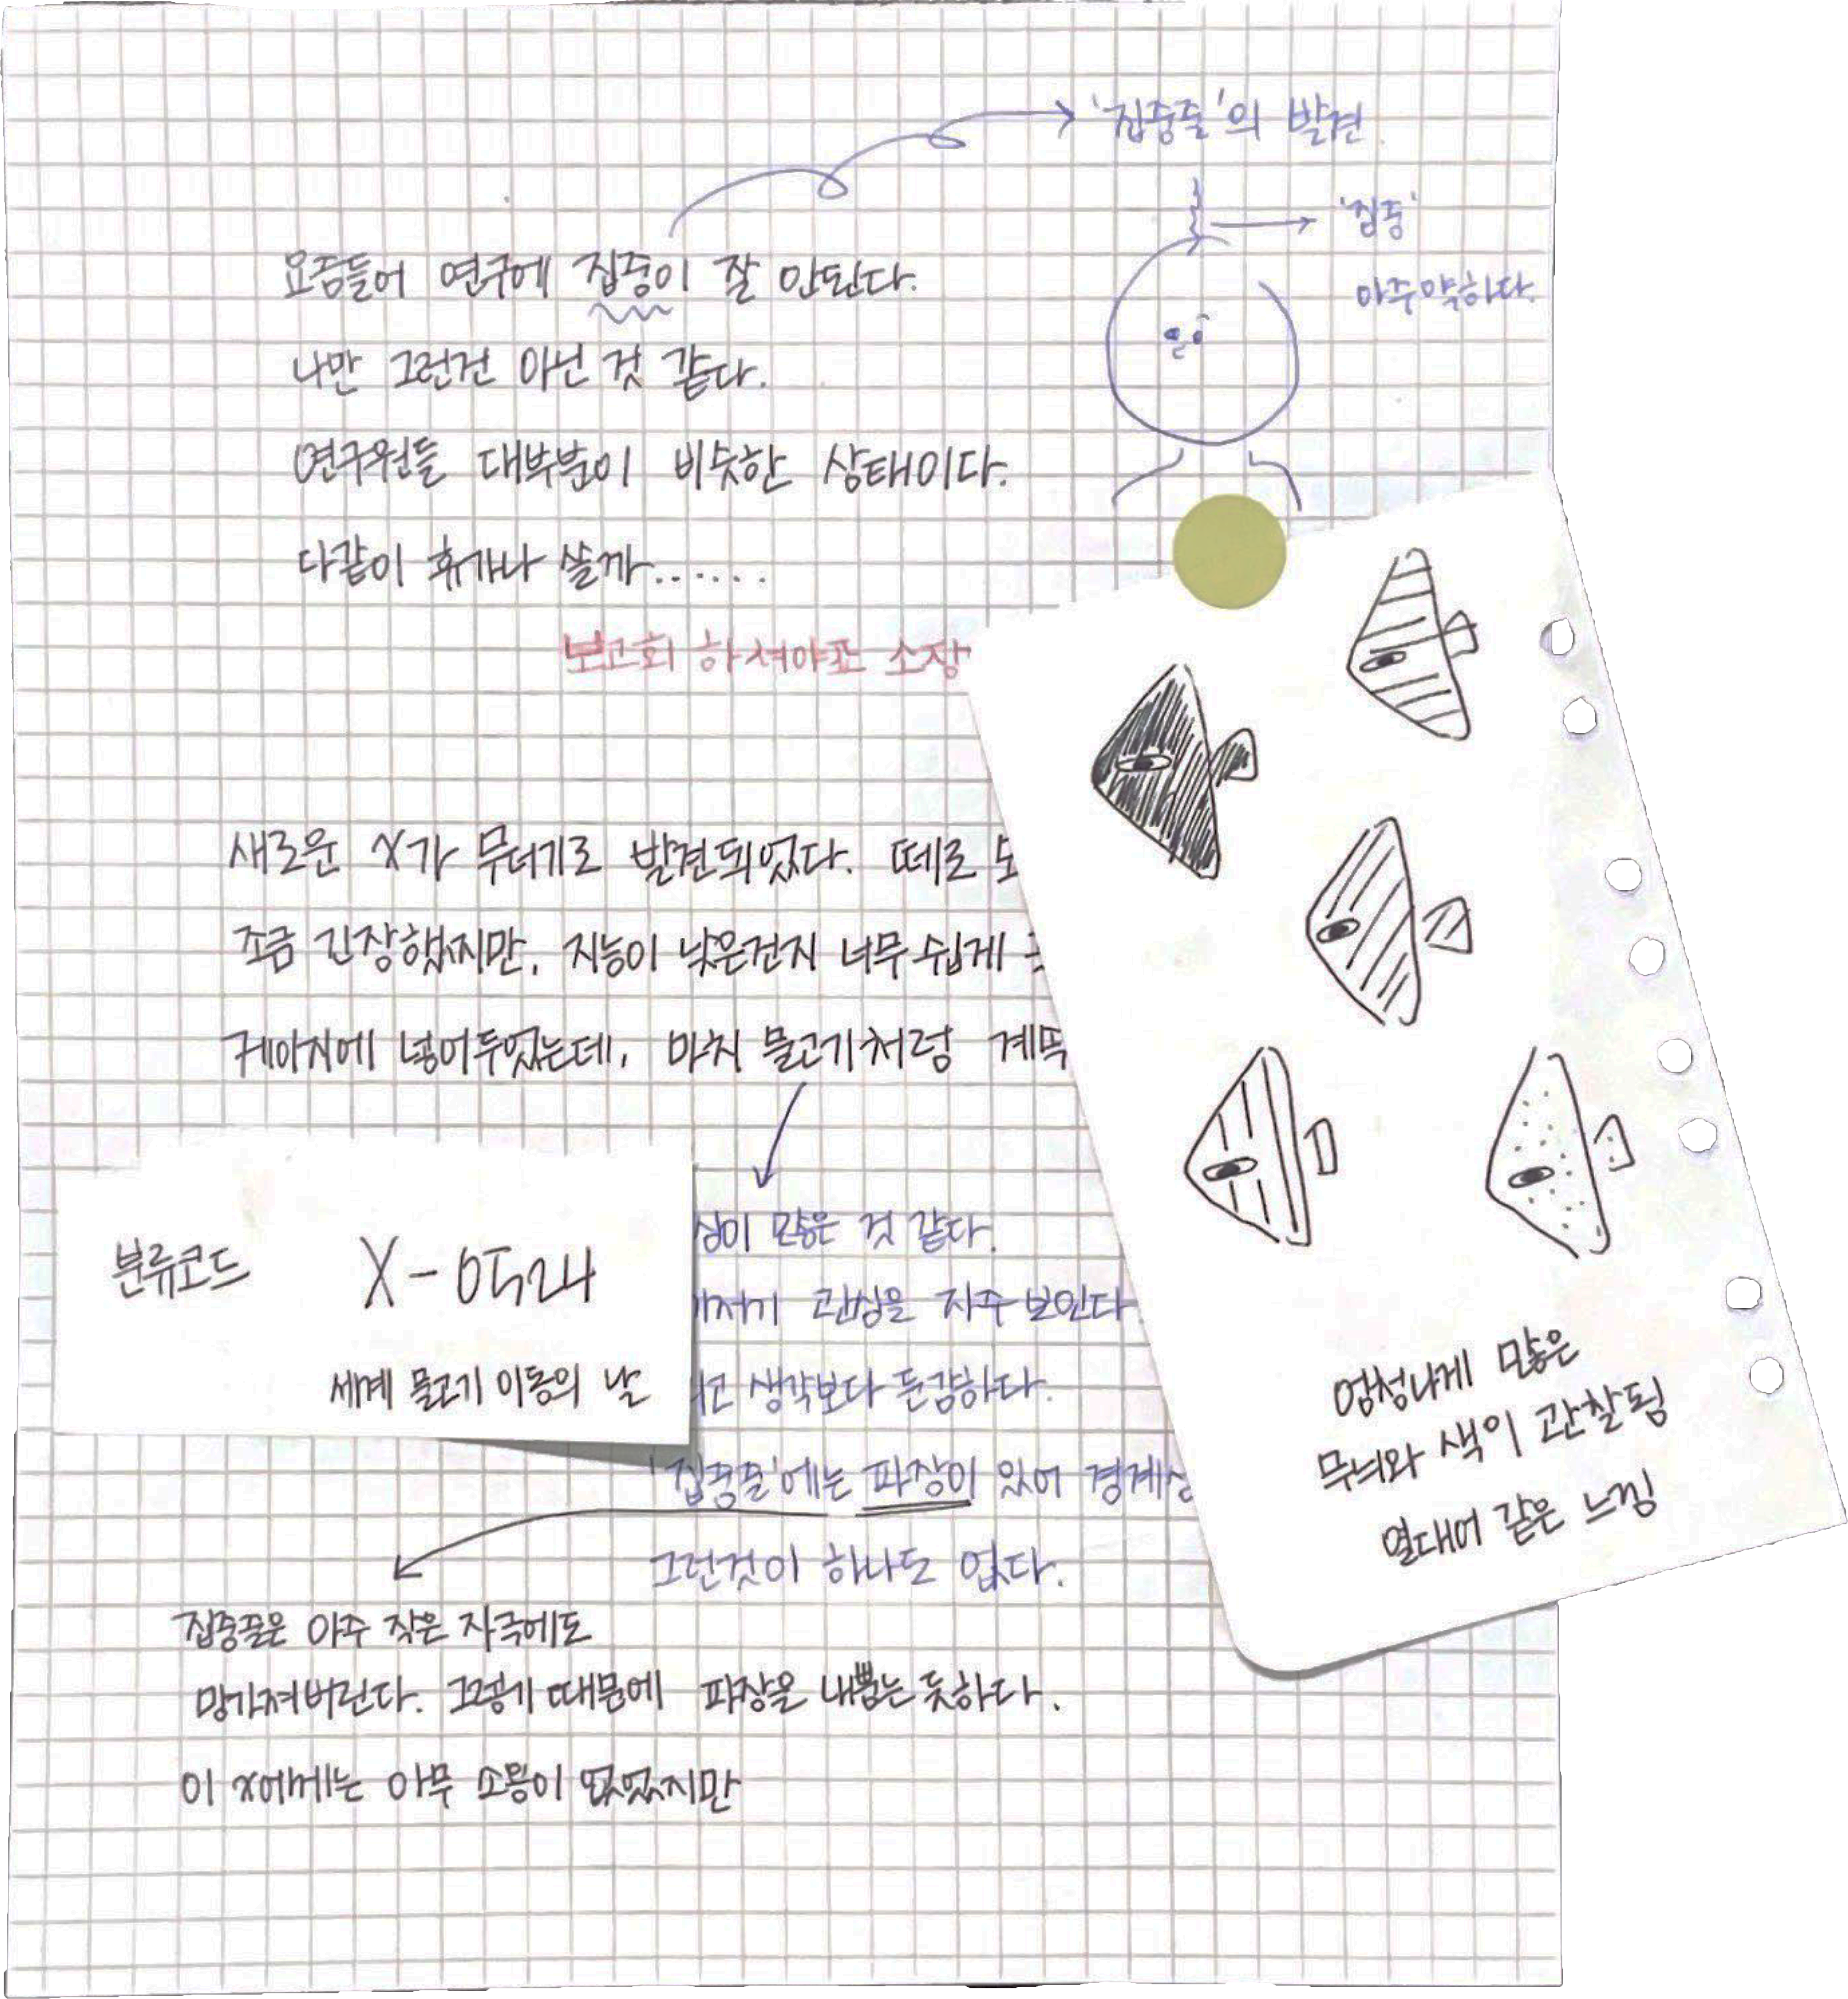 '집중줄'의 발견
'집중'
아주 약하다.
요즘들어 연구에 집중이 잘 안된다.
나만 그런건 아닌 것 같다.
연구원들 대부분이 비슷한 상태이다.
다같이 휴가나 쓸까......
보고회 하셔야죠 소장
새로운 X가 무더기로 발견되었다. 떼로
조금 긴장했지만, 지능이 낮은건지 너무 쉽게
케이지에 넣어두었는데, 마치 물고기처럼 계속
많은 것 같다.
관심을 자주 보인다
생각보다 둔감하다.
'집중줄'에는 파장이 있어
그런것이 하나도 없다.
분류코드 X-0524
세계 물고기 이동의 날
집중줄은 아주 작은 자극에도
망가져버린다. 그렇기 때문에 파장을 내뿜는 듯하다.
이 X에게는 아무 소용이 없었지만
엄청나게 많은
무늬와 색이 관찰됨
열대어 같은 느낌